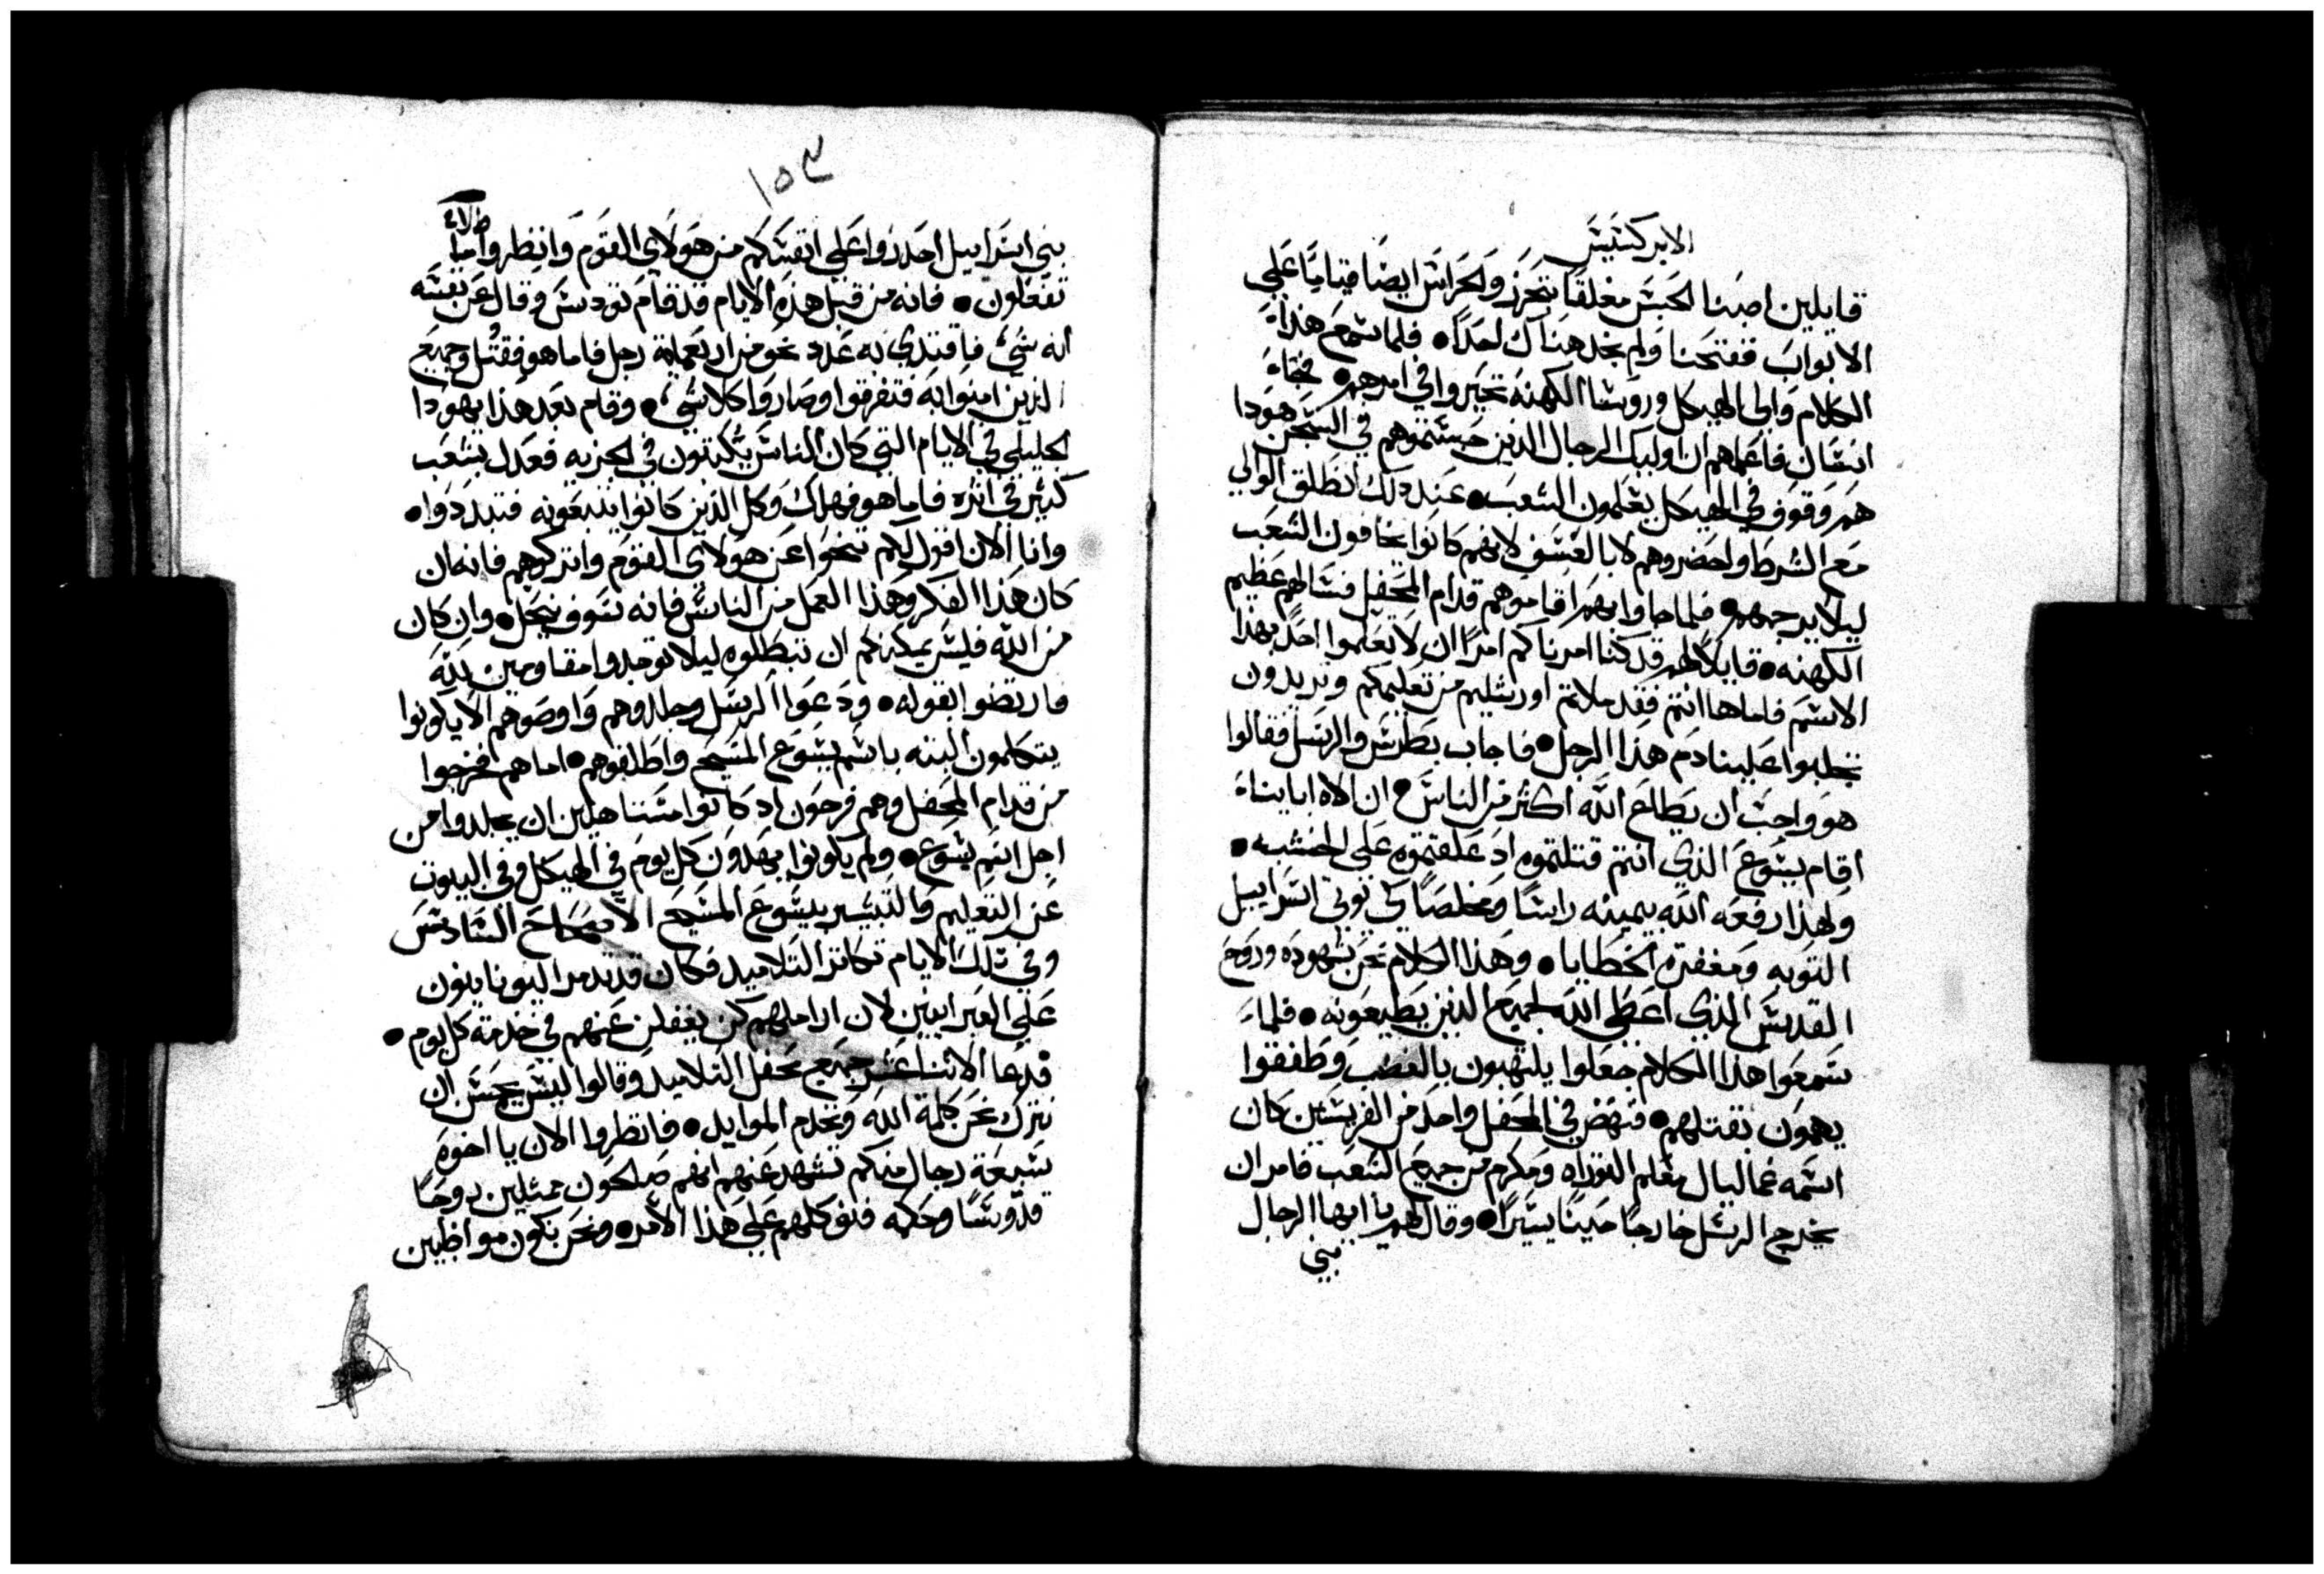 الابركسيس
قايلين اصبنا الحبس مغلقا بتحرز والحراس ايضا قياما علي
الابواب ففتحنا ولم نجد هناك احدا • فلما سمع هذا
الكلام والي الهيكل وروسا الكهنه تحيروا في امرهم • فجاء
انسان فاعلمهم ان اوليك الرجال الذين حبستموهم في السجن هودا
هم وقوف في الهيكل يعلمون الشعب • عند ذلك انطلق الوالي
مع الشرط واحضروهم لا بالعسف لانهم كانوا يخافون الشعب
ليلا يرجمهم • فلما جاوا بهم اقاموهم قدام المحفل فسالهم عظيم
الكهنه • قايلا لهم قد كنا امرناكم امرا ان لا تعلموا احد بهذا
الاسم فاما هاانتم فقد ملاتم اورشليم من تعليمكم وتريدون
تجلبوا علينا دم هذا الرجل • فاجاب بطرس والرسل فقالوا
هو واجب ان يطاع الله اكثر من الناس • ان الاه اباينا
اقام يسوع الذي انتم قتلتموه اذ علقتموه علي الخشبه •
ولهذا رفعه الله بيمينه راسا ومخلصا كي توتي اسراييل
التوبه ومغفرة الخطايا • وهذا الكلام نحن شهوده وروح
القدس الذي اعطي الله لجميع الذين يطيعونه • فلما
سمعوا هذا الكلام جعلوا يلتهبون بالغضب وطفقوا
يهمون بقتلهم • فنهض في المحفل واحد من الفريسيين كان
اسمه غماليال معلم التوراه ومكرم من جميع الشعب فامر ان
يخرج الرسل خارجا حينا يسيرا • وقال لهم يا ايها الرجال
بني
١٥٣
بني اسراييل احدروا علي انفسكم من هولاي القوم وانظروا ما
تفعلون • فانه من قبل هذه الايام قد قام تودس وقال عن نفسه
انه شي فاقتدي به عدد نحو من اربعماية رجل فاما هو فقتل وجميع
الذين امنوا به فتفرقوا وصاروا كلا شي • وقام بعد هذا يهودا
الجليلي في الايام التي كان الناس يكتتون في الجزيه فعدل بشعب
كثير في اثره فاما هو فهلك وكل الذين كانوا يتبعونه فتبددوا •
وانا الان اقول لكم تنحوا عن هولاي القوم واتركوهم فانه ان
كان هذا الفكر وهذا العمل من الناس فانه سوف ينحل • وان كان
من الله فليس يمكنكم ان تبطلوه ليلا توجدوا مقاومين لله
فارتضوا بقوله • ودعوا الرسل وجلدوهم واوصوهم الا يكونوا
يتكلمون البته باسم يسوع المسيح واطلقوهم • اما هم فخرجوا
من قدام المحفل وهم فرحون اد كانوا مستاهلين ان يجلدوا من
اجل اسم يسوع • ولم يكونوا يهدون كل يوم في الهيكل وفي البيوت
عن التعليم والتبشير بيسوع المسيح الاصحاح السادس
وفي تلك الايام تكاثر التلاميد فكان قد تدمر اليونانيون
علي العبرانيين لان اراملهم كن يغفلن عنهم في خدمة كل يوم •
فدعا الاثنا عشر جميع محفل التلاميد وقالوا ليس يحسن ان
نترك نحن كلمة الله ونخدم الموايد • فانظروا الان يا اخوه
سبعة رجال منكم تشهد عنهم انهم صلحون ممتليين روحا
قدوسا وحكمه فنوكلهم علي هذا الامر • ونحن نكون مواظبين